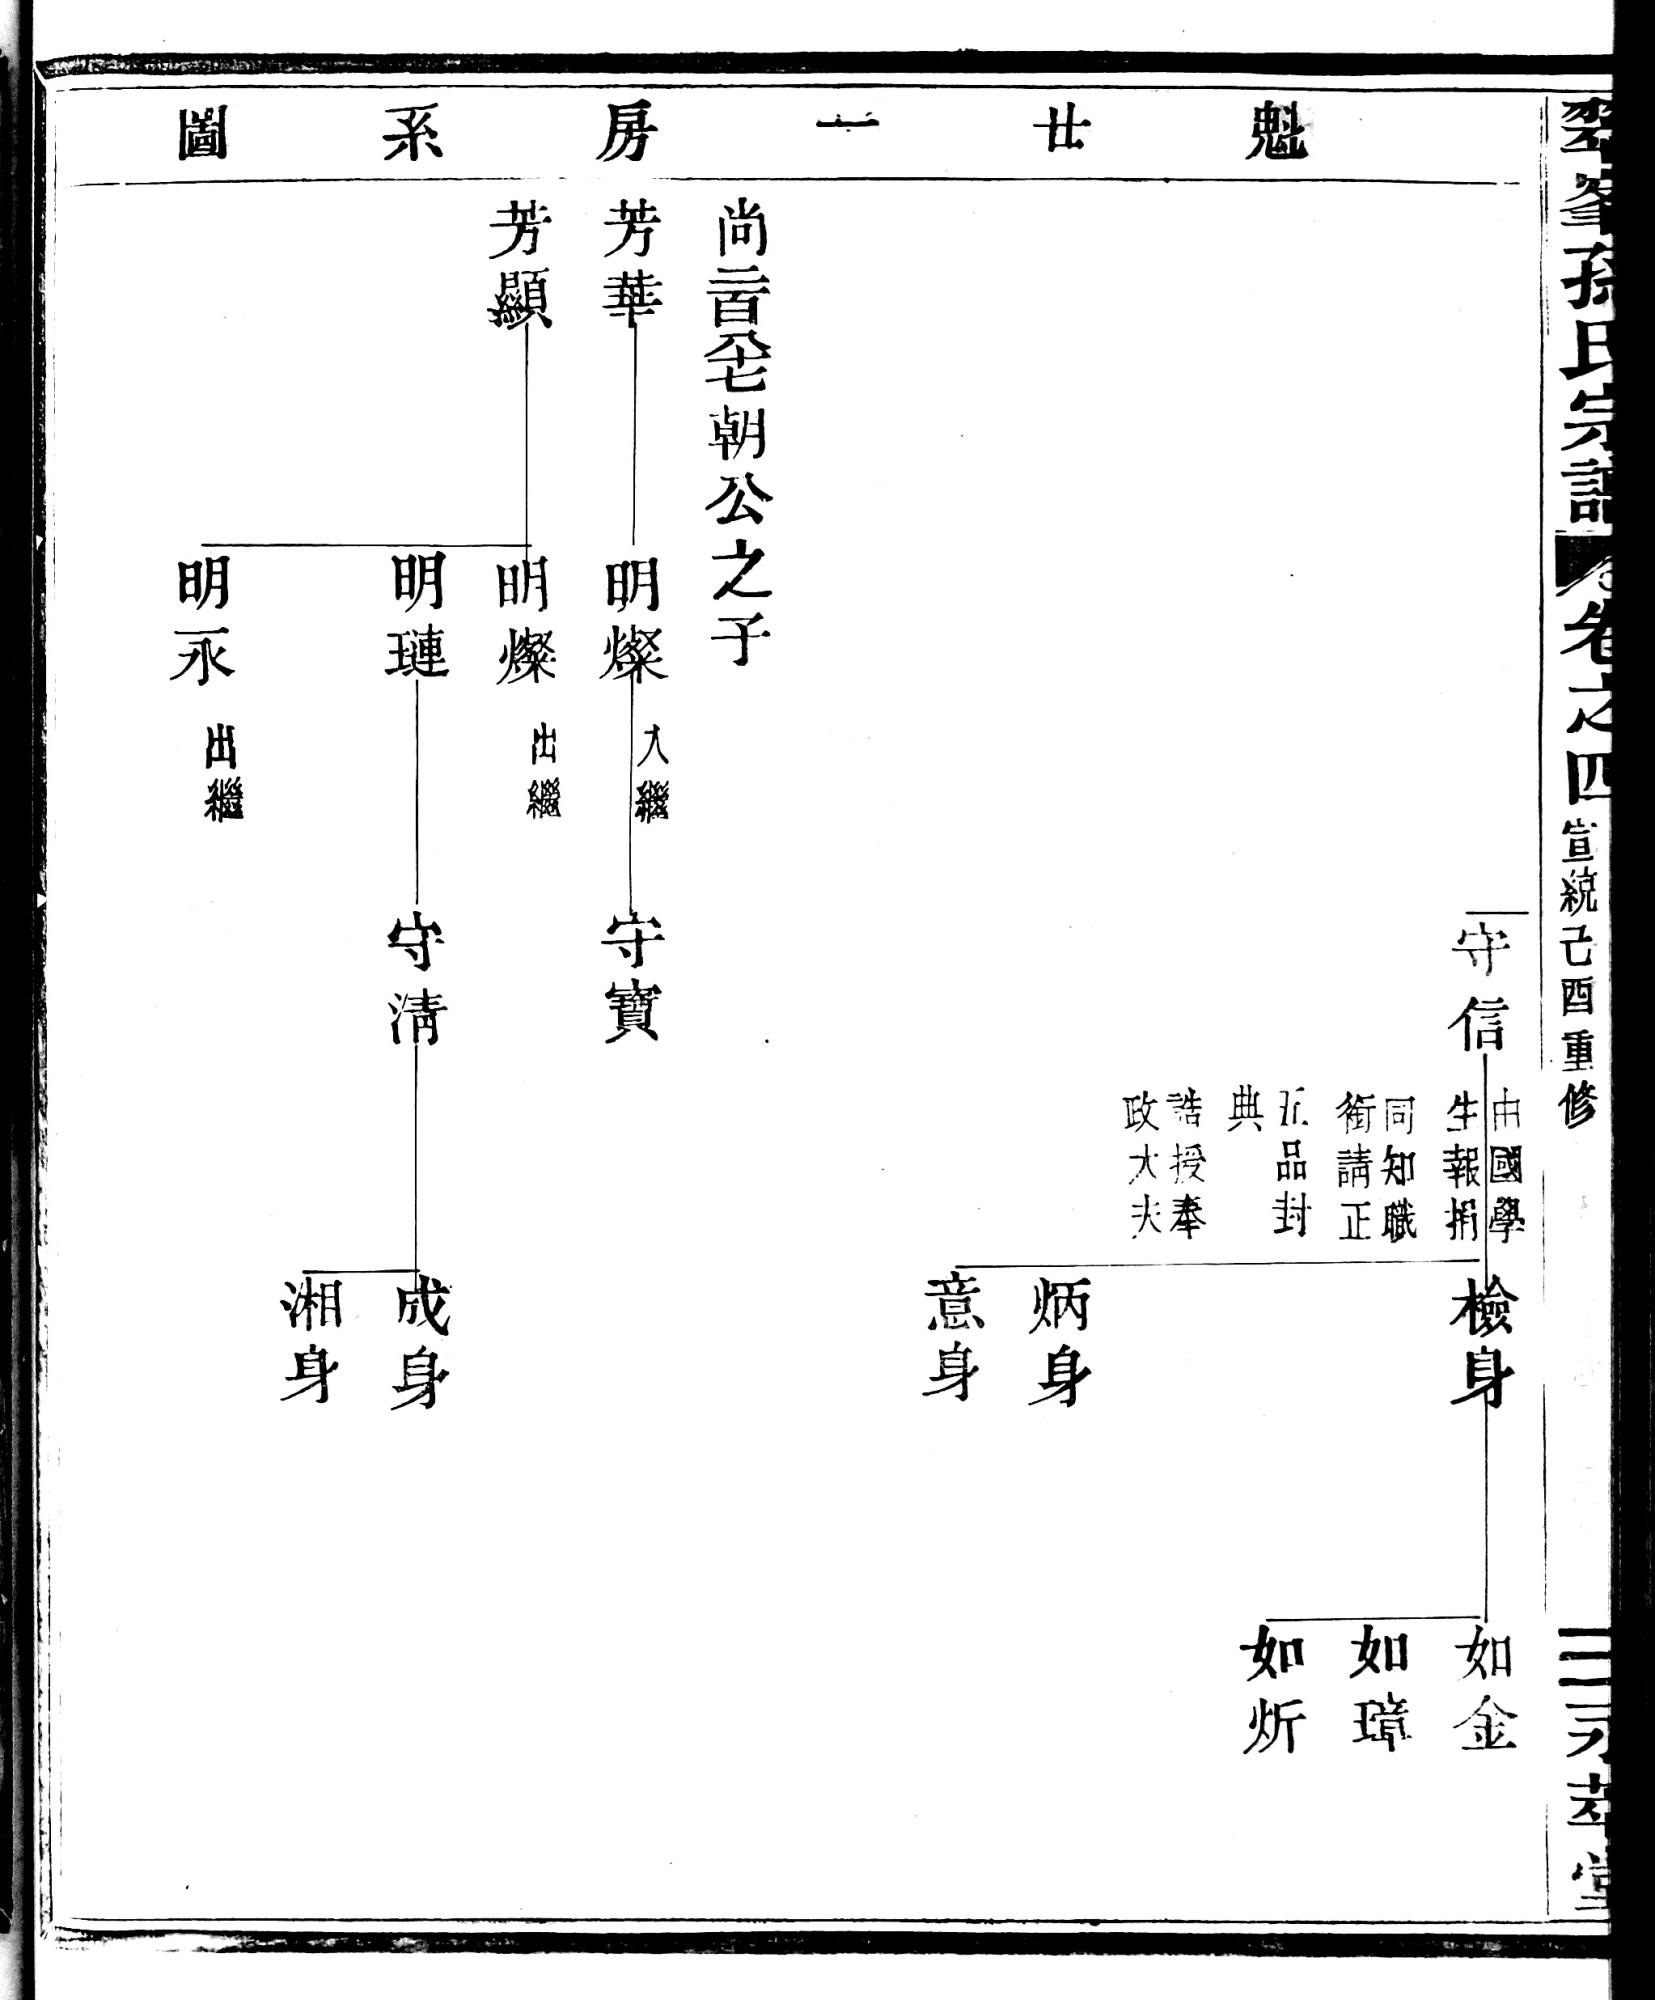 翠峯孫氏宗譜
卷之四
宣統己酉重修
二
永萃堂
魁廿一房系圖
守信
由國學
生報捐
同知職
銜請正
五品封
典
誥授奉
政大夫
檢身
炳身
意身
如金
如璋
如炘
尚二百八十七朝公之子
芳華
明燦
入繼
守寶
芳顯
明燦
出繼
明璉
守清
成身
湘身
明永
出繼